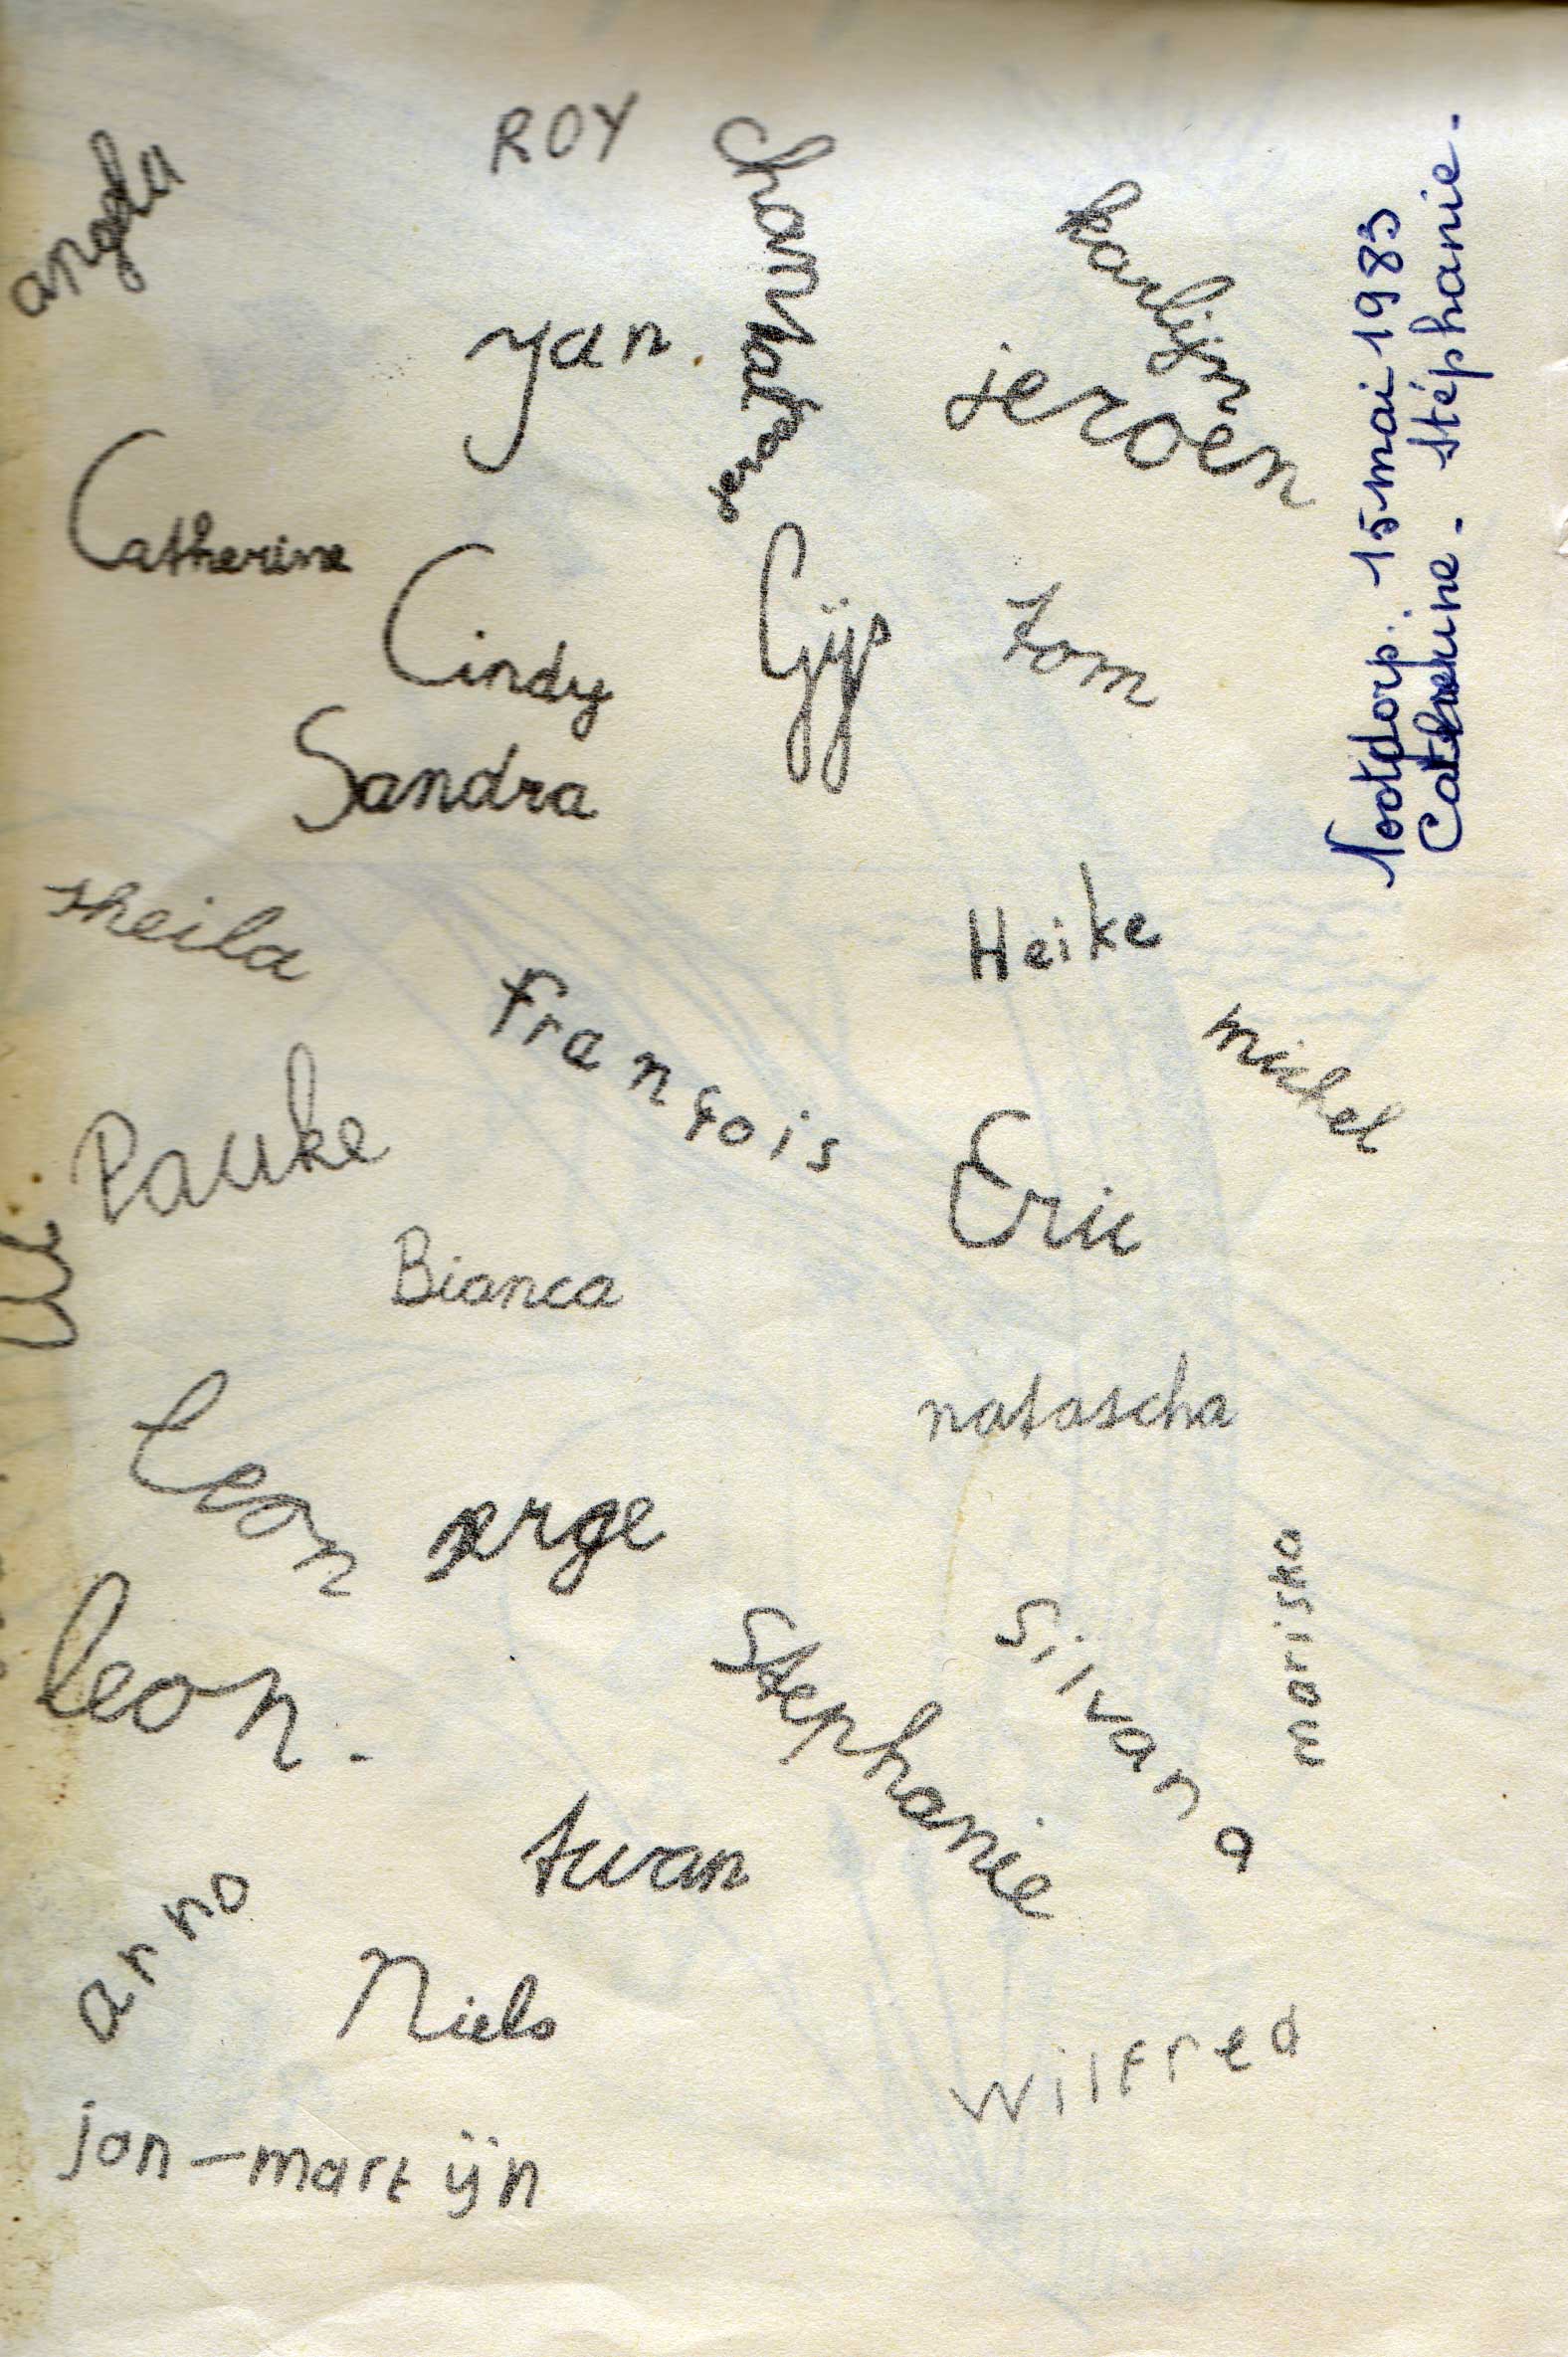 angela
ROY
karlijn
yan
jeroen
Catherine
Cindy
Gijp
tom
Sandra
sheila
Heike
françois
michel
Pauke
Eric
Bianca
natascha
leon
serge
leon.
Stephanie
Silvana
mariska
twan
arno
Niels
Wilfred
jan-martijn
Nootdorp. 15 mai 1983
Catherine. Stéphanie.